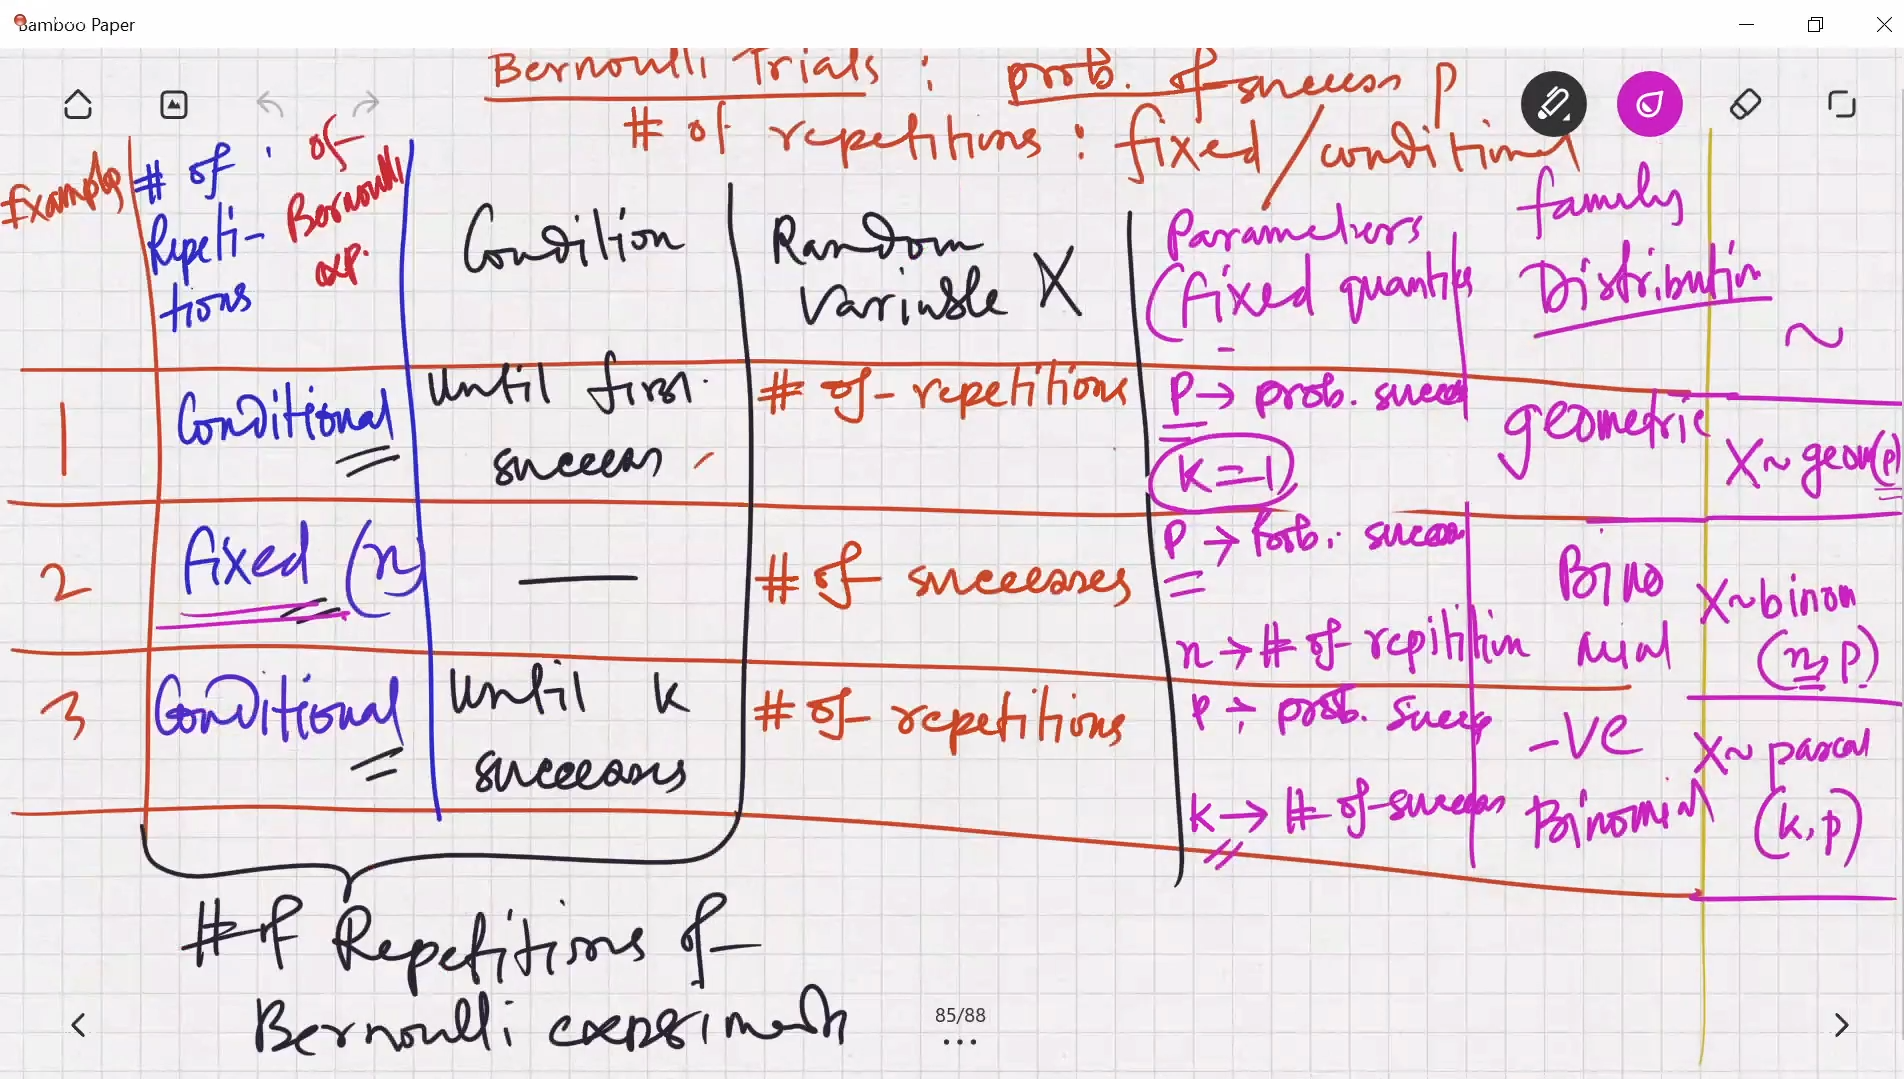 Bamboo Paper
Bernoulli Trials : prob. of success p
# of repetitions : fixed / conditional
Examples
# of Repeti-tions
of Bernoulli exp.
Condition
Random Variable X
Parameters
(fixed quantities
family
Distribution
~
1
Conditional
Until first success
# of repetitions
p → prob. success
k = 1
geometric
X ~ geom(p)
2
fixed (n)
—
# of successes
p → prob. success
n → # of repitition
Bino
mial
X ~ binom
(n, p)
3
Conditional
Until k
successes
# of repetitions
p → prob. success
k → # of success
-ve
Binomial
X ~ pascal
(k, p)
# of Repetitions of
Bernoulli experiment
85/88